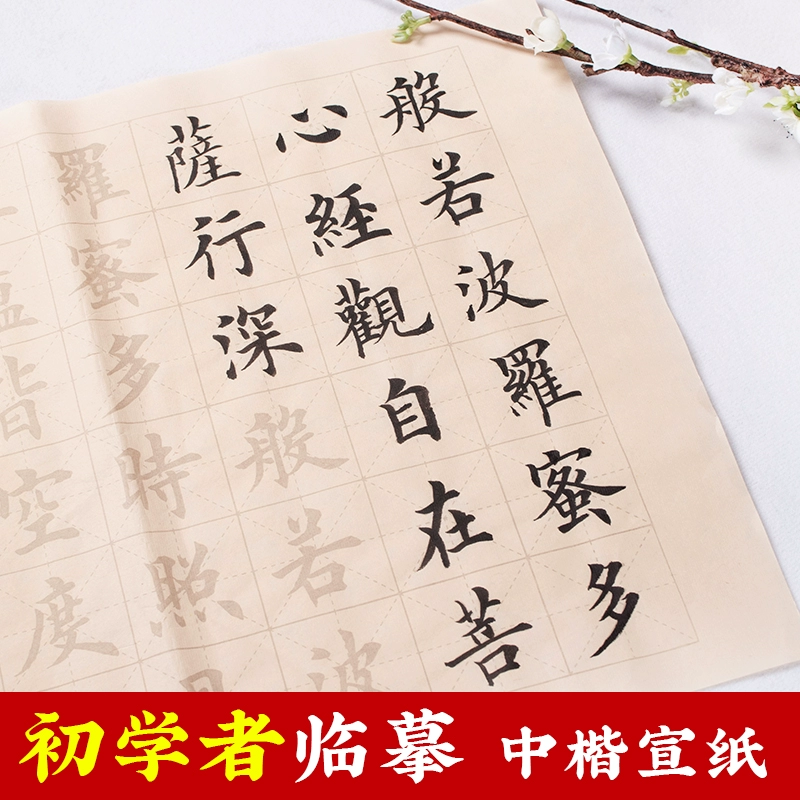 般若波羅蜜多
心経觀自在菩
薩行深般若波
羅蜜多時照
皆空度
初学者临摹 中楷宣纸